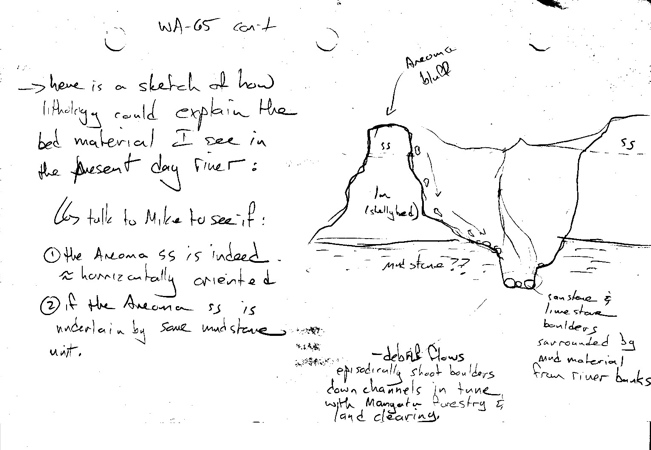 WA-65 con-t
→ here is a sketch of how
lithology could explain the
bed material I see in
the present day river:
↳ talk to Mike to see if:
① the Areoma ss is indeed
≈ horrizontally oriented
② if the Areoma ss is
underlain by some mudstone
unit.
Areoma
bluff
ss
ss
lm
(shellybed)
mudstone??
sanstone &
limestone
boulders
surrounded by
mud material
from river banks
-debris flows
episodically shoot boulders
down channels in tune
with Mangatu forestry &
land clearing.